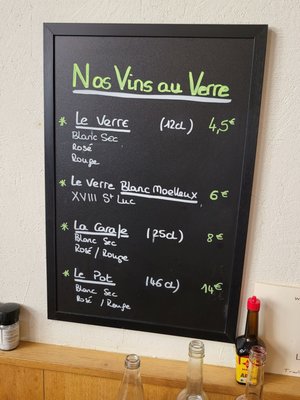 Nos Vins au Verre
* Le Verre (12cl) 4,5€
Blanc Sec
Rosé
Rouge
* Le Verre Blanc Moelleux 6€
XVIII St Luc
* La Carafe (25cl) 8€
Blanc Sec
Rosé / Rouge
* Le Pot (46cl) 14€
Blanc Sec
Rosé / Rouge